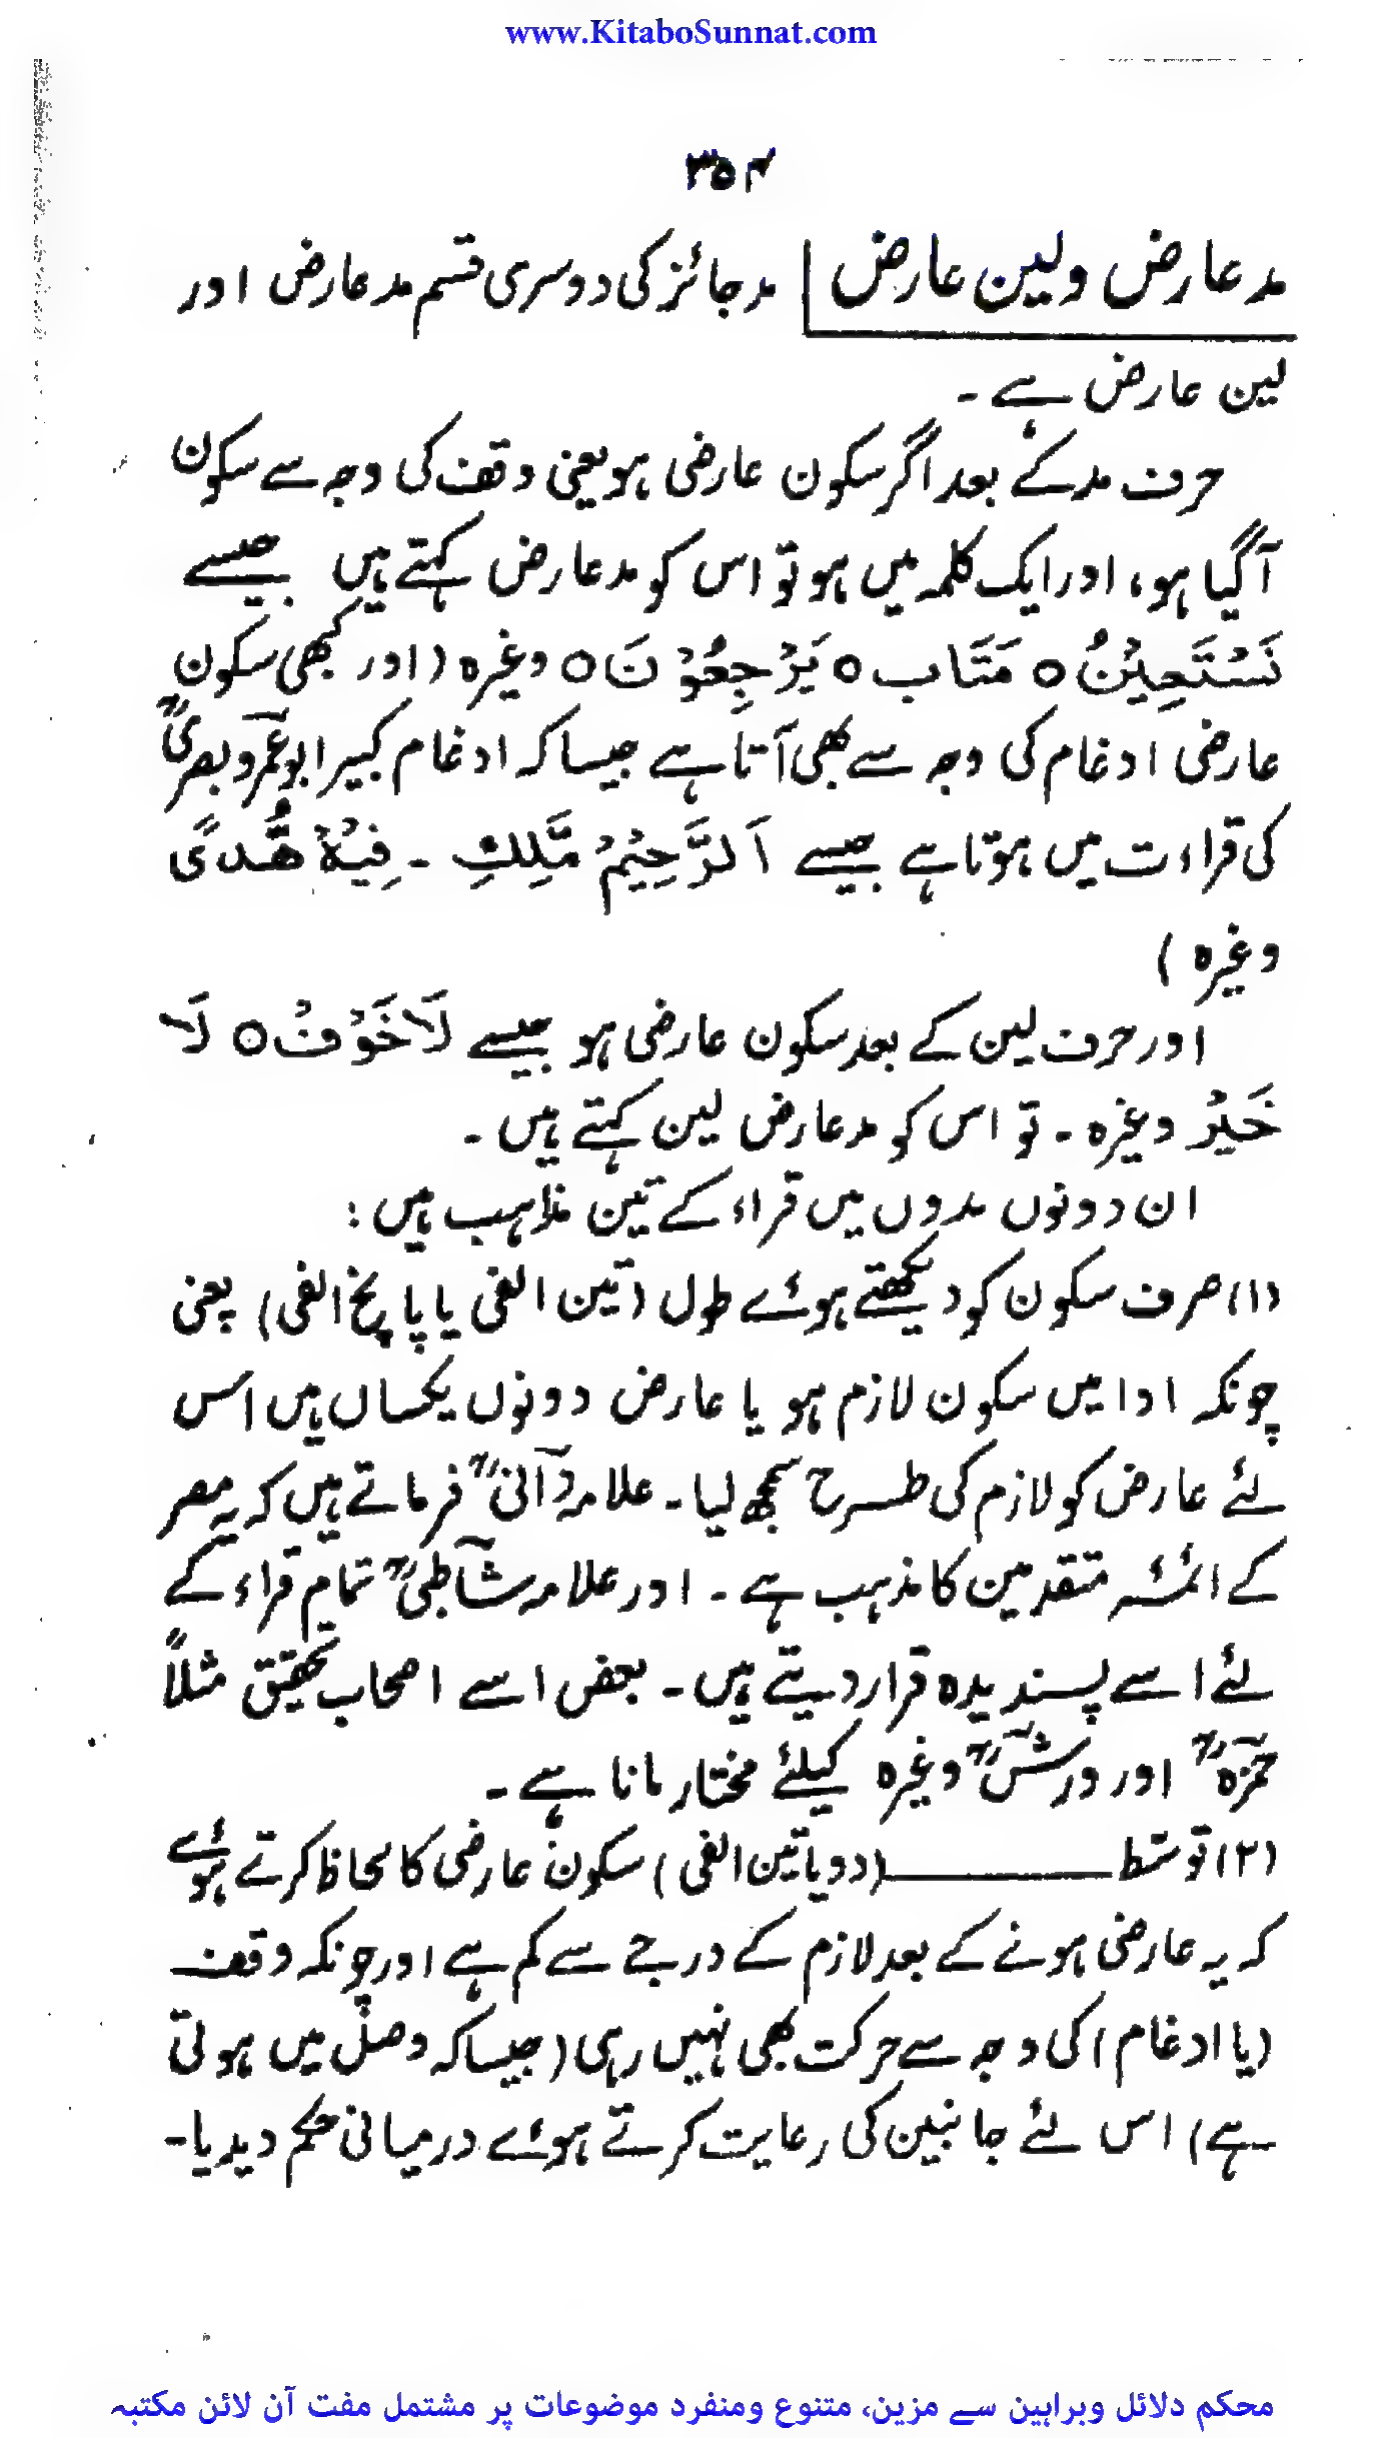 www.KitaboSunnat.com
۳۵۴
مد عارض ولین عارض | مد جائز کی دوسری قسم مد عارض اور
لین عارض ہے ۔
حرف مد کے بعد اگر سکون عارضی ہو یعنی وقف کی وجہ سے سکون
آگیا ہو، اور ایک کلمہ میں ہو تو اس کو مد عارض کہتے ہیں جیسے
نَسْتَعِيْنُ ○ مَتَاب ○ يَرْجِعُوْنَ ○ وغیرہ (اور کبھی سکون
عارضی ادغام کی وجہ سے بھی آتا ہے جیسا کہ ادغام کبیر ابو عمرو بصریؒ
کی قراءت میں ہوتا ہے جیسے اَلرَّحِيْمْ مَّلِكِ ۔ فِيْهْ هُّدًى
وغیرہ )
اور حرف لین کے بعد سکون عارضی ہو جیسے لَا خَوْفْ ○ لَا
خَيْرْ وغیرہ ۔ تو اس کو مد عارض لین کہتے ہیں ۔
ان دونوں مدوں میں قراء کے تین مذاہب ہیں :
(۱) صرف سکون کو دیکھتے ہوئے طول (تین الفی یا پانچ الفی) یعنی
چونکہ ادا میں سکون لازم ہو یا عارض دونوں یکساں ہیں اس
لئے عارض کو لازم کی طرح سمجھ لیا ۔ علامہ دانیؒ فرماتے ہیں کہ یہ مصر
کے ائمہ متقدمین کا مذہب ہے ۔ اور علامہ شاطبیؒ تمام قراء کے
لئے اسے پسندیدہ قرار دیتے ہیں ۔ بعض اسے اصحاب تحقیق مثلاً
حمزہؒ اور ورشؒ وغیرہ کیلئے مختار مانا ہے ۔
(۲) توسّط ــــــــــ (دو یا تین الفی) سکون عارضی کا لحاظ کرتے ہوئے
کہ یہ عارضی ہونے کے بعد لازم کے درجے سے کم ہے اور چونکہ وقف
(یا ادغام) کی وجہ سے حرکت بھی نہیں رہی (جیسا کہ وصل میں ہوتی
ہے) اس لئے جانبین کی رعایت کرتے ہوئے درمیانی حکم دیدیا ۔
محکم دلائل وبراہین سے مزین، متنوع ومنفرد موضوعات پر مشتمل مفت آن لائن مکتبہ